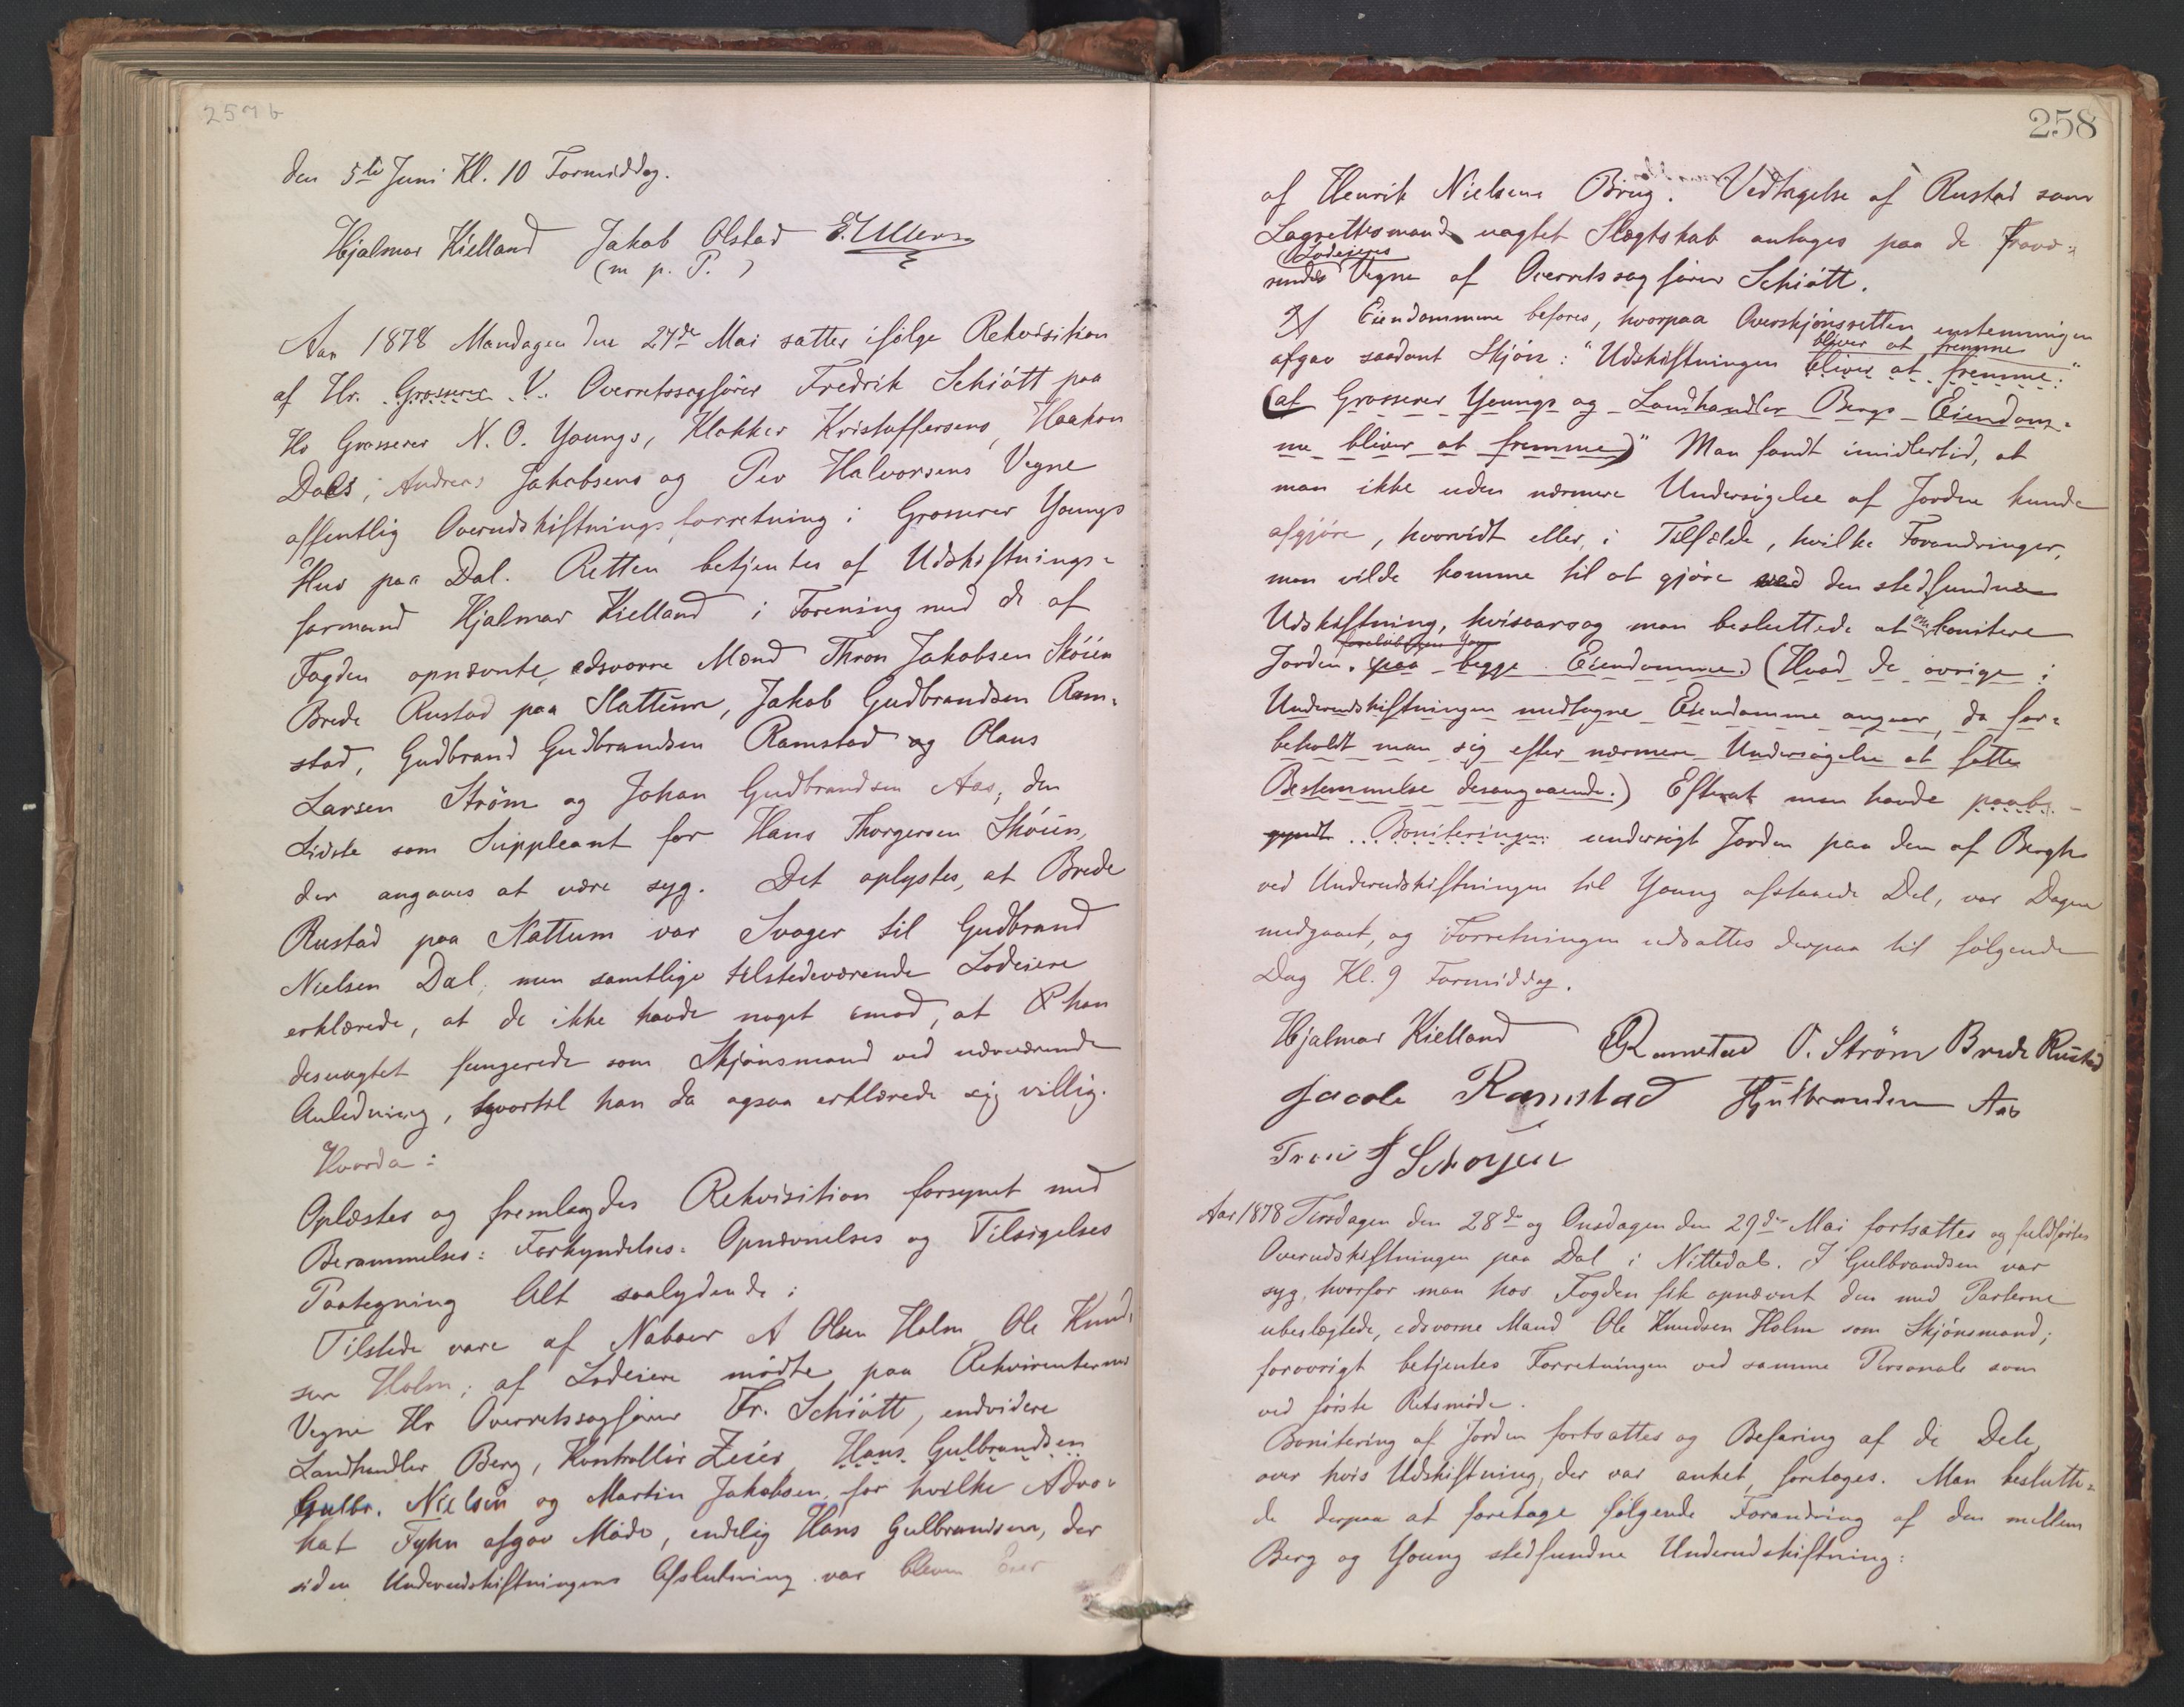 257b
den 5te Juni Kl. 10 Formiddag.
Hjalmar Kielland Jakob Olstad E. Ullern
(m p. P.)
Aar 1878 Mandagen den 27de Mai sattes ifølge Rekvisition
af Hr. Grosserer V. Overretssagfører Fredrik Schiøtt paa
Hr Grosserer N. O. Youngs, Klokker Kristoffersens, Haakon
Dals, Andreas Jakobsens og Per Halvorsens Vegne
offentlig Overudskiftningsforretning i Grosserer Youngs
Hus paa Dal. Retten betjentes af Udskiftnings-
formand Hjalmar Kielland i Forening med de af
Fogden opnævnte, edsvorne Mænd Thron Jakobsen Skøien
Brede Rustad paa Slattum, Jakob Gudbrandsen Ram-
stad, Gudbrand Gudbrandsen Ramstad og Olaus
Larsen Strøm og Johan Gudbrandsen Aas, den
Sidste som Suppleant for Hans Thorgersen Skøien,
der angaves at være syg. Det oplystes, at Brede
Rustad paa Slattum var Svoger til Gudbrand
Nielsen Dal, men samtlige tilstedeværende Lodeiere
erklærede, at de ikke havde noget imod, at han
desuagtet fungerede som Skjønsmand ved nærværende
Anledning, hvortil han da ogsaa erklærede sig villig.
Hvorda:
Oplæstes og fremlagdes Rekvisition forsynet med
Berammelses- Forkyndelses- Opnævnelses og Tilsigelses
Paategning Alt saalydende:
Tilstede vare af Naboer A Olsen Holm, Ole Knud-
sen Holm; af Lodeiere mødte paa Rekvirenternes
Vegne Hr Overretssagfører Fr. Schiøtt, endvidere
Landhandler Berg, Kontrollør Zeier, Hans Gulbrandsen
Gulbr. Nielsen og Martin Jakobsen, for hvilke Advo-
kat Fyhn afgav Møde, endelig Hans Gulbrandsen, der
siden Underudskiftningens Afslutning var bleven Eier
258
af Henrik Nielsens Brug. Vedtagelse af Rustad som
Lagrettesmand uagtet Slægtskab antages paa de Fravæ-
Lodeieres
rendes Vegne af Overretssagfører Schiøtt.
Eiendommene befores, hvorpaa Overskjønsretten enstemmigen
bliver at fremme
afgav saadant Skjøn: "Udskiftningen bliver at fremme."
(af Grosserer Youngs og Landhandler Bergs Eiendom-
me bliver at fremme)" Man fandt imidlertid, at
man ikke uden nærmere Undersøgelse af Jorden kunde
afgjøre, hvorvidt eller, i Tilfælde, hvilke Forandringer,
man vilde komme til at gjøre ved den stedfundne
Udskiftning, hvisaarsag man besluttede at om bonitere
Jorden. paa begge Eiendomme) (Hvad de øvrige i
Underudskiftningen medtagne Eiendomme angaar, da for-
beholdt man sig efter nærmere Undersøgelse at fatte
Bestemmelse desangaaende.) Efterat man havde paabe-
gyndt Boniteringen undersøgt Jorden paa den af Bergh
ved Underudskiftningen til Young afstaaede Del, var Dagen
medgaaet, og Forretningen udsattes derpaa til følgende
Dag Kl. 9 Formiddag.
Hjalmar Kielland G Ramstad O. Strøm Brede Rustad
Jacob Ramstad J Gulbrandsen Aas
Tron J Schøyen
Aar 1878 Tirsdagen den 28de og Onsdagen den 29de Mai fortsattes og fuldførtes
Overudskiftningen paa Dal i Nittedal. J Gulbrandsen var
syg, hvorfor man hos Fogden fik opnævnt den med Parterne
ubeslægtede, edsvorne Mand Ole Knudsen Holm som Skjønsmand;
forøvrigt betjentes Forretningen ved samme Personale som
ved første Retsmøde.
Bonitering af Jorden fortsattes og Befaring af de Dele,
over hvis Udskiftning, der var anket, foretoges. Man beslutte-
de derpaa at foretage følgende Forandring af den mellem
Berg og Young stedfundne Underudskiftning: